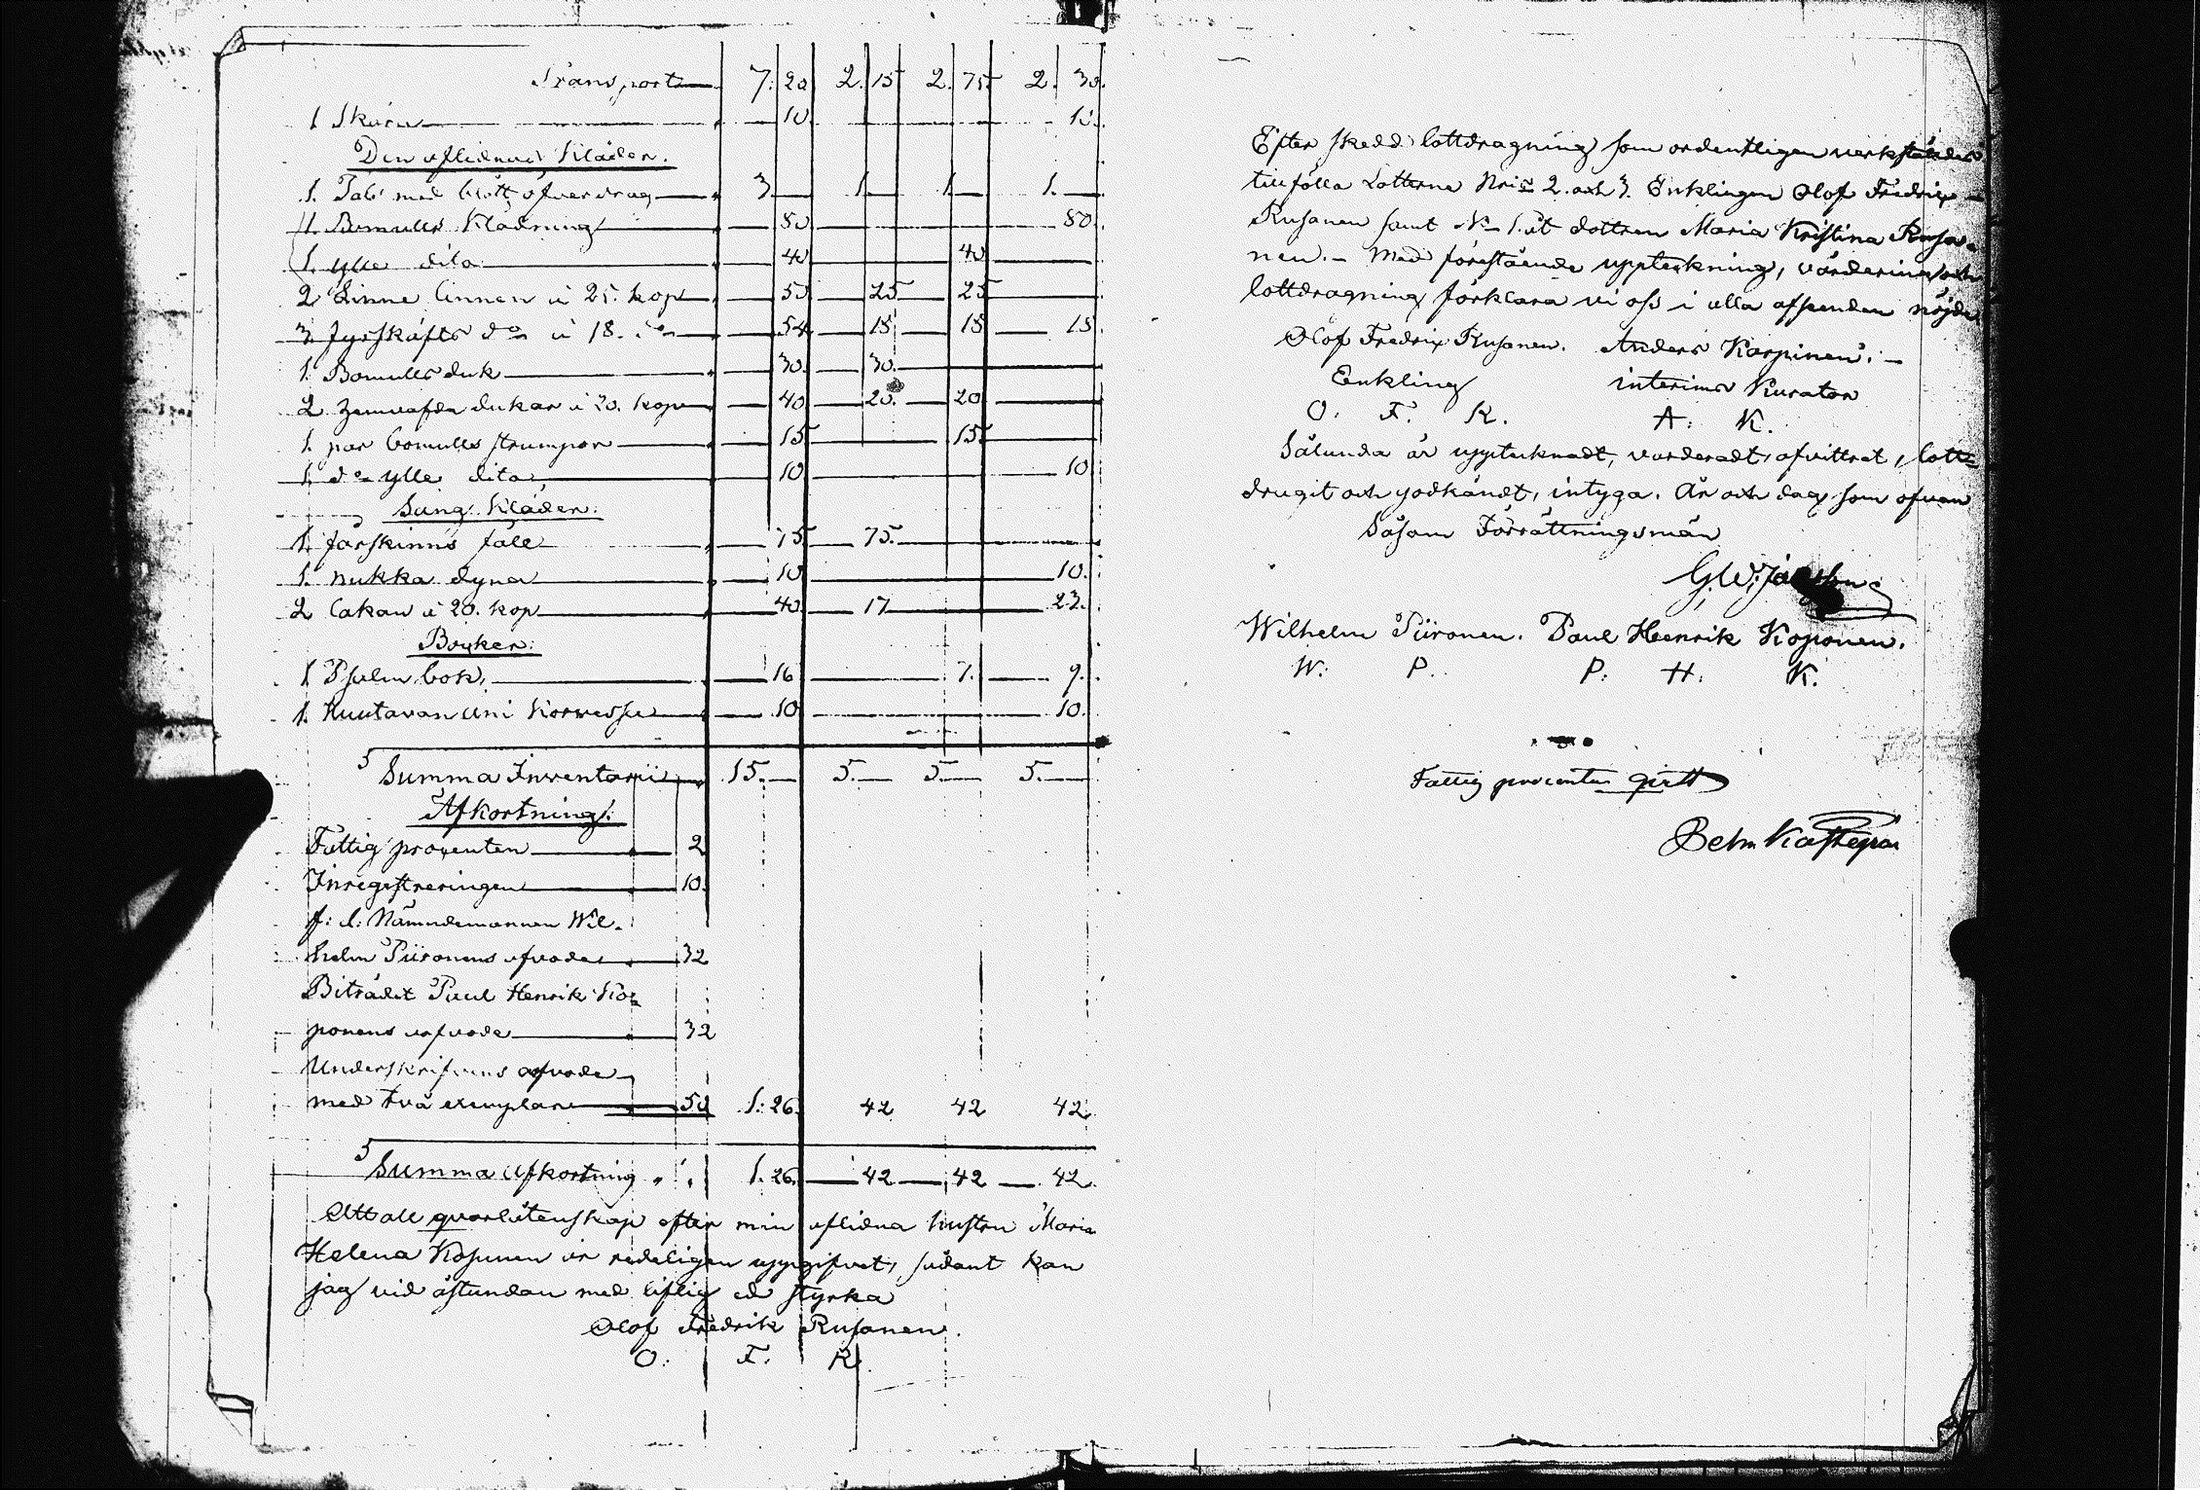 Transport 7. 20 2. 15 2. 75 2. 30.
1 Skära 10. 10.
Den aflidnas Kläder.
1. Tals med klött öfverdrag 3. 1. 1. 1.
1. Bomulls Klädning 80. 80.
1. ylle dito 40 40
2 Linne linnen à 25. kop 50 25 25
3. fyrskäfts do à 18. do 54 18 18 18.
1. Bomulls duk 30. 30.
2 dukar à 20. kop 40 20. 20
1. par bomulls strumpor 15 15
1. do ylle dito, 10 10
Säng Kläder.
1. fårskinns fäll 75. 75.
1. nukka dyna 10 10.
2 lakan à 20. kop 40. 17 23.
Böcker.
1 Psalm bok, 16 7. 9.
1. Huutavan ääni Korvessa 10. 10.
Summa Inventarii 15. 5. 5. 5.
Afkortning.
Fattig procenten 2
Inregistreringen 10.
f: d: Nämndemannen Wil-
helm Piironens arfvode 32
Biträdet Paul Henrik Ko-
ponens arfvode 32
Underskrifvens arfvode
med två exemplar 50 1. 26. 42 42 42.
Summa afkortning 1. 26. 42 42 42.
Att all qvarlåtenskap efter min aflidna hustru Maria
Helena Kosunen är redeligen uppgifvet, sådant kan
jag vid åstundan med liflig ed styrka
Olof Fredrik Rusanen.
O. F. R.
Efter skedd lottdragning som ordentligen verkstäldes
tillföllo Lotterne Nris 2. och 3. Enklingen Olof Fredrik
Rusanen samt No 1. åt dottren Maria Kristina Rusa-
nen. - Med förestående uppteckning, värdering och
lottdragning förklara vi oss i alla afseenden nöjde
Olof Fredrik Rusanen. Anders Karpinen.
Enkling interims Kurator
O. F. R. A. K.
Sålunda är upptecknadt, värderadt, afvittrat, lott-
dragit och godkändt, intyga. År och dag som ofvan
Såsom Förrättningsmän
G. W.
Wilhelm Piironen. Paul Henrik Koponen.
W. P. P. H. K.
Fattig procenten girtt